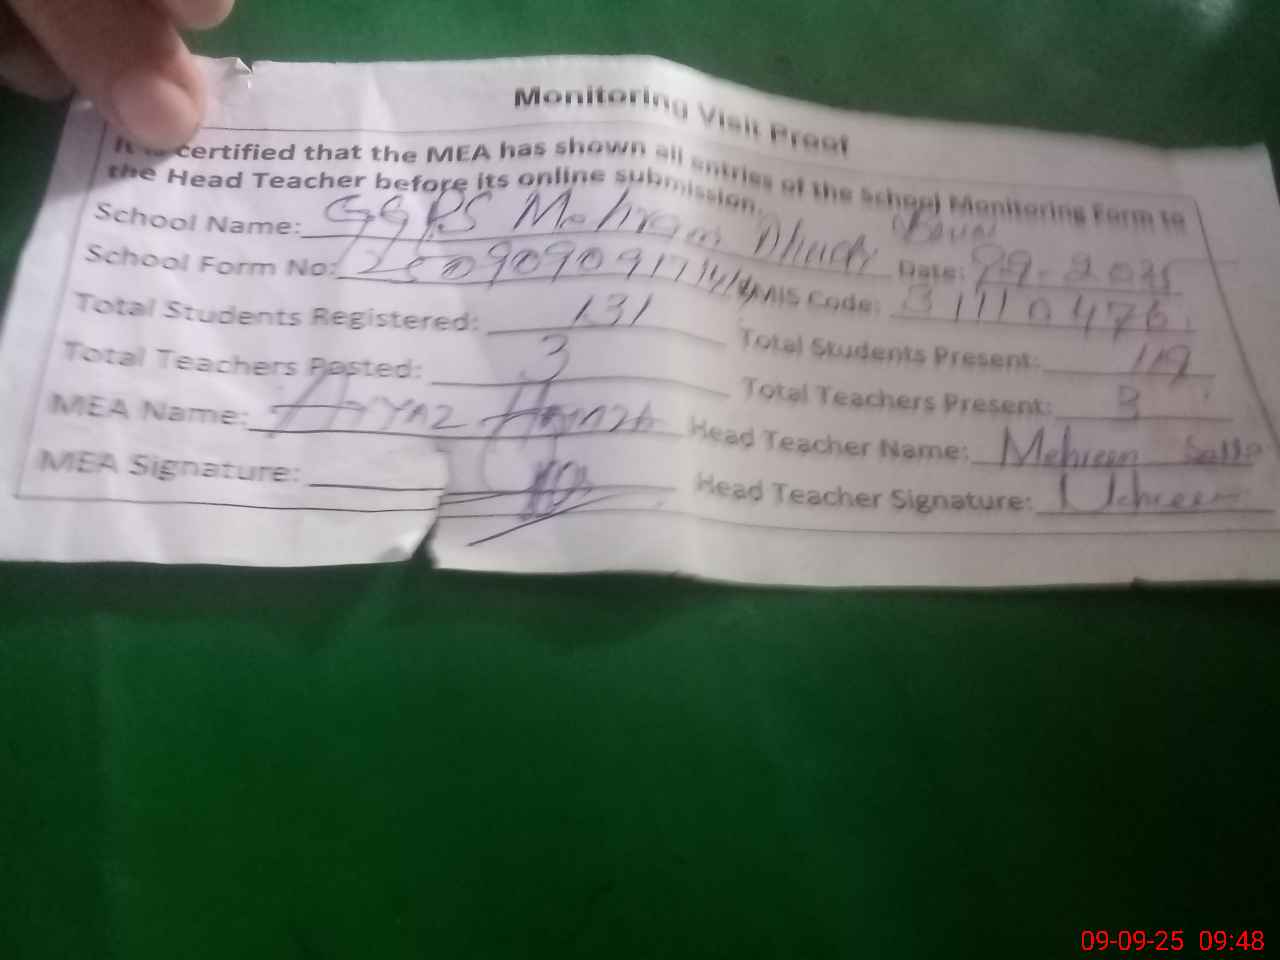 Monitoring Visit Proof
It is certified that the MEA has shown all entries of the School Monitoring Form to
the Head Teacher before its online submission.
School Name: GGPS Mahram Date: 9-9-2025
School Form No: EMIS Code: 31110476
Total Students Registered: 131 Total Students Present: 119
Total Teachers Posted: 3 Total Teachers Present: 3
MEA Name: Head Teacher Name: Mehreen
MEA Signature: Head Teacher Signature: Mehreen
09-09-25 09:48